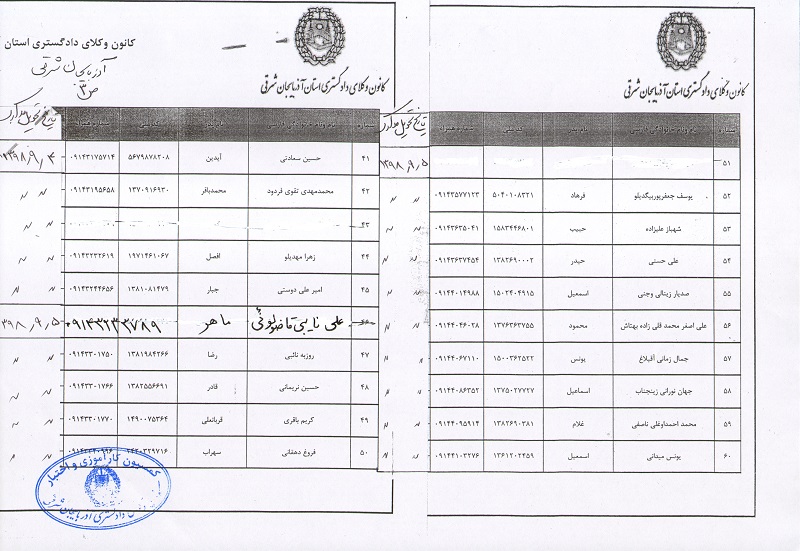 کانون وکلای دادگستری استان
آذربایجان شرقی
ص ۳
کانون وکلای دادگستری استان آذربایجان شرقی
شماره نام ونام خانوادگی فارسی نام پدر کدملی شماره همراه تاریخ تحویل مدارک
۴۱ حسین سعادتی آیدین ۵۶۷۹۸۷۸۲۰۸ ۰۹۱۴۳۱۷۵۷۱۴ ۱۳۹۸,۹,۴
۴۲ محمدمهدی تقوی قردود محمدباقر ۱۳۷۰۹۱۶۹۳۰ ۰۹۱۴۳۱۹۵۶۵۸ 〃 〃
۴۳ 〃 〃
۴۴ زهرا مهدیلو افضل ۱۹۷۱۴۶۱۰۶۷ ۰۹۱۴۳۲۳۲۶۱۹ 〃 〃
۴۵ امیر علی دوستی جبار ۱۳۸۱۰۸۱۴۷۹ ۰۹۱۴۳۲۴۴۶۵۶ 〃 〃
علی نایبی قاضولوئی ماهر ۰۹۱۴۳۲۳۲۷۸۹ ۳۹۸,۹,۵
۴۷ روزبه نائبی رضا ۱۳۸۱۹۸۴۲۶۶ ۰۹۱۴۳۳۰۱۷۵۰ 〃 〃
۴۸ حسین نریمانی قادر ۱۳۸۲۵۵۶۶۹۱ ۰۹۱۴۳۳۰۱۷۶۶ 〃 〃
۴۹ کریم باقری قربانعلی ۱۴۹۰۰۷۵۳۶۴ ۰۹۱۴۳۳۰۱۷۷۰ 〃 〃
۵۰ فروغ دهقانی سهراب 〃 〃
کمیسیون کارآموزی و اختبار
دادگستری آذربایجان شرقی
کانون وکلای دادگستری استان آذربایجان شرقی
شماره نام ونام خانوادگی فارسی نام پدر کدملی شماره همراه تاریخ تحویل مدارک
۵۱ ۱۳۹۸,۹,۵
۵۲ یوسف جعفرپوربیگدیلو فرهاد ۵۰۴۰۱۰۸۳۲۱ ۰۹۱۴۳۵۷۷۱۲۳ 〃 〃
۵۳ شهباز علیزاده حبیب ۱۵۸۳۴۴۶۸۰۱ ۰۹۱۴۳۶۳۵۰۴۱ 〃 〃
۵۴ علی حسنی حیدر ۱۳۸۲۶۹۰۰۰۲ ۰۹۱۴۳۶۳۷۴۵۴ 〃 〃
۵۵ صدیار زینالی وجنی اسمعیل ۱۵۰۲۴۰۴۹۱۵ ۰۹۱۴۴۰۱۴۹۸۸ 〃 〃
۵۶ علی اصغر محمد قلی زاده بهتاش محمود ۱۳۷۶۳۶۳۷۵۵ ۰۹۱۴۴۰۴۶۰۲۸ 〃 〃
۵۷ جمال زمانی آقبلاغ یونس ۱۵۰۰۳۶۲۵۲۲ ۰۹۱۴۴۰۶۷۱۱۰ 〃 〃
۵۸ جهان نورانی زینجناب اسماعیل ۱۳۷۵۰۲۷۷۲۷ ۰۹۱۴۴۰۸۶۳۵۲ 〃 〃
۵۹ محمد احمداوغلی ناصفی غلام ۱۳۸۲۶۹۰۳۸۱ ۰۹۱۴۴۰۹۵۹۱۴ 〃 〃
۶۰ یونس میدانی اسمعیل ۱۳۶۱۲۰۲۴۵۹ ۰۹۱۴۴۱۰۳۲۷۶ 〃 〃